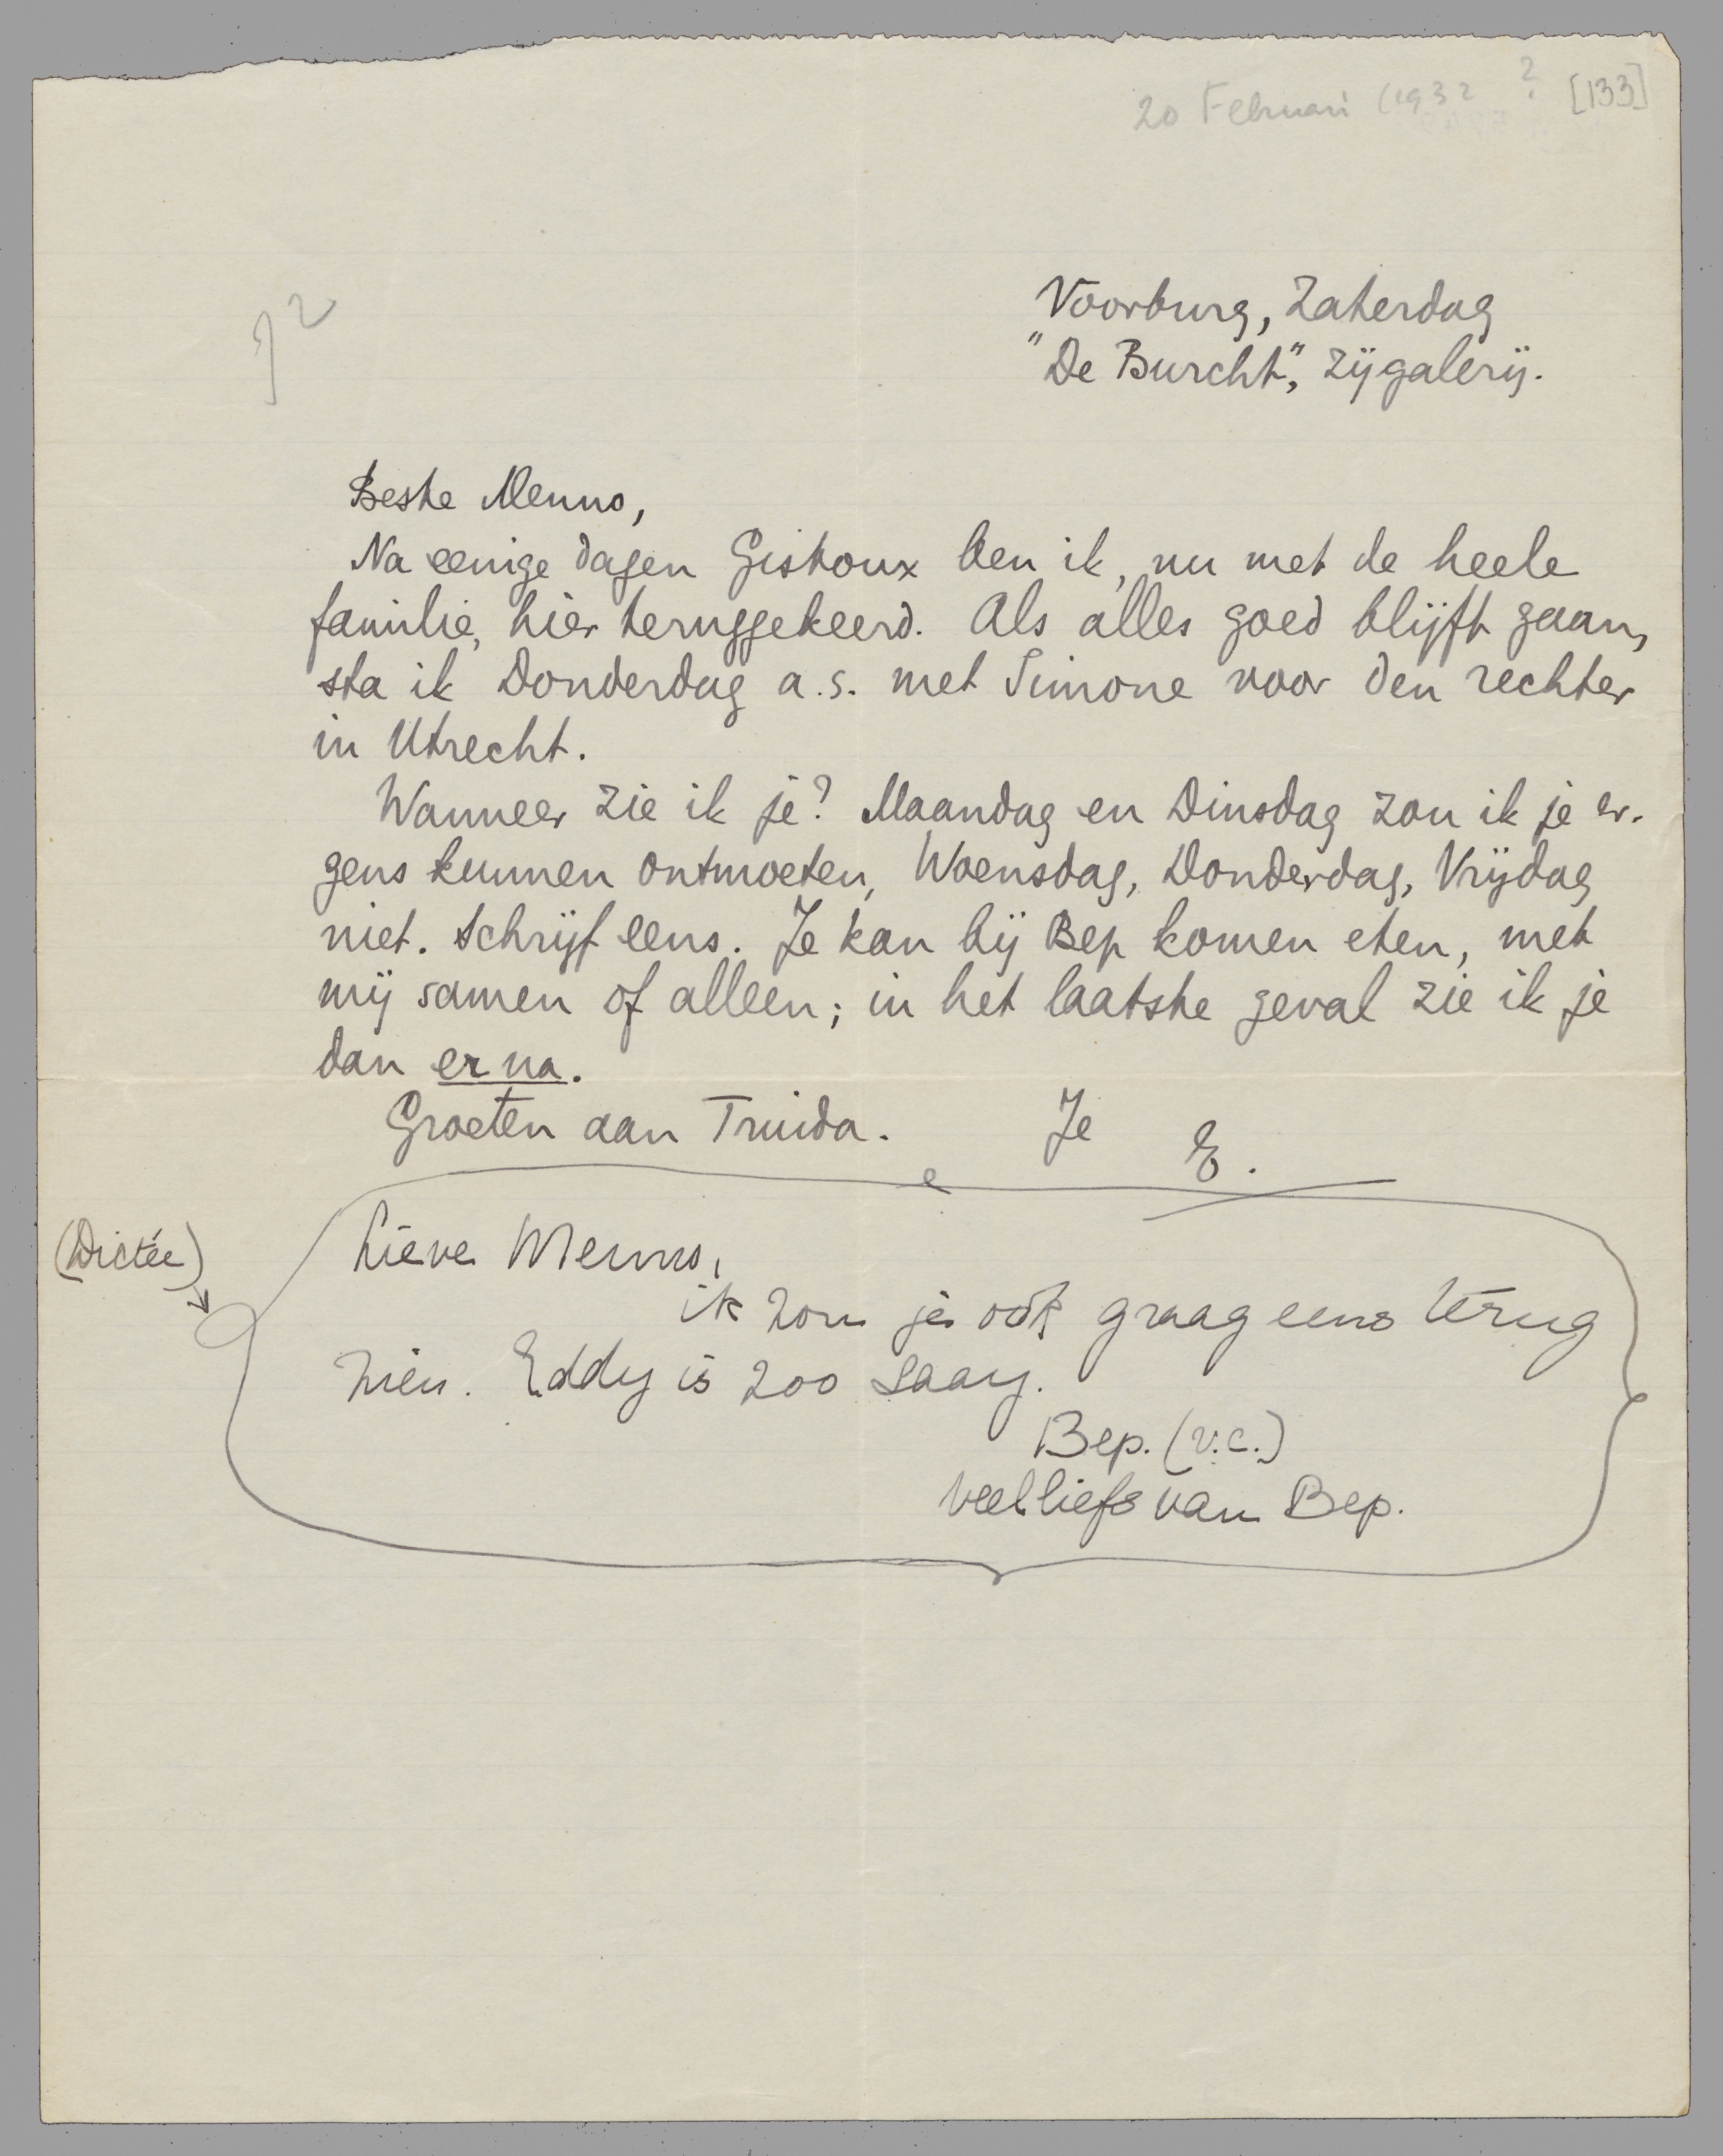 20 Februari (1932 ? [133]
Voorburg, Zaterdag
"De Burcht", Zijgalerij.
Beste Menno,
Na eenige dagen Gistoux ben ik, nu met de heele
familie, hier teruggekeerd. Als alles goed blijft gaan,
sta ik Donderdag a.s. met Simone voor den rechter
in Utrecht.
Wanneer zie ik je? Maandag en Dinsdag zou ik je er-
gens kunnen ontmoeten, Woensdag, Donderdag, Vrijdag
niet. Schrijf eens. Je kan bij Bep komen eten, met
mij samen of alleen; in het laatste geval zie ik je
dan er na.
Groeten aan Truida. Je E.
(Dictée)
Lieve Menno,
ik zou je ook graag eens terug
zien. Eddy is zoo saay.
Bep. (v.c.)
veel liefs van Bep.